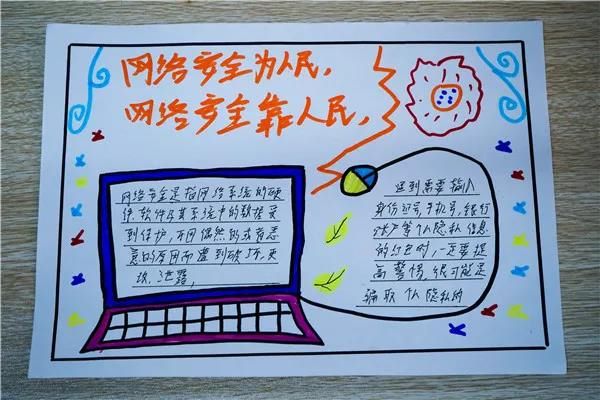 网络安全为人民，
网络安全靠人民，
网络安全是指网络系统的硬
件软件及其系统中的数据受
到保护，不因偶然的或者恶
意的原因而遭到破坏，更
改、泄露，
遇到需要输入
身份证号，手机号，银行
账户等个人隐私信息
的红包时，一定要提
高警惕，很可能是
骗取个人隐私的